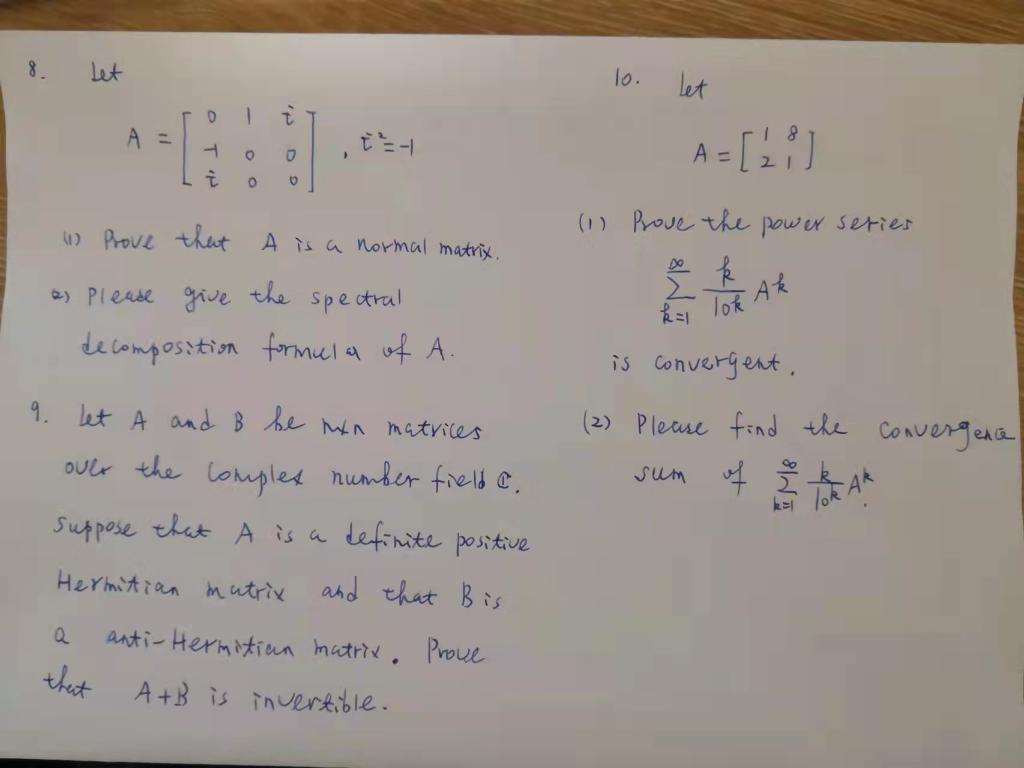 8. Let
A = [ 0 1 i
-1 0 0
i 0 0 ] , i²=-1
(1) Prove that A is a normal matrix.
(2) Please give the spectral
decomposition formula of A.
9. Let A and B be n×n matrices
over the complex number field ℂ.
Suppose that A is a definite positive
Hermitian matrix and that B is
a anti-Hermitian matrix. Prove
that A+B is invertible.
10. Let
A = [ 1 8
2 1 ]
(1) Prove the power series
∞
∑ k/10^k A^k
k=1
is convergent.
(2) Please find the convergence
sum of ∞∑k=1 k/10^k A^k.